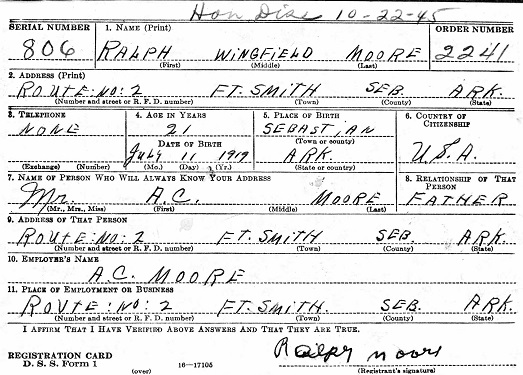 Hon Disc 10-22-45
SERIAL NUMBER 1. NAME (Print) ORDER NUMBER
806 RALPH WINGFIELD MOORE 2241
(First) (Middle) (Last)
2. ADDRESS (Print)
ROUTE: NO: 2 FT. SMITH SEB ARK.
(Number and street or R. F. D. number) (Town) (County) (State)
3. TELEPHONE 4. AGE IN YEARS 5. PLACE OF BIRTH 6. COUNTRY OF CITIZENSHIP
NONE 21 SEBAST,AN
DATE OF BIRTH (Town or county)
July 11 1919 ARK. U.S.A.
(Exchange) (Number) (Mo.) (Day) (Yr.) (State or country)
7. NAME OF PERSON WHO WILL ALWAYS KNOW YOUR ADDRESS 8. RELATIONSHIP OF THAT PERSON
Mr. A.C. MOORE FATHER
(Mr., Mrs., Miss) (First) (Middle) (Last)
9. ADDRESS OF THAT PERSON
ROUT: NO: 2 FT. SMITH SEB. ARK.
(Number and street or R. F. D. number) (Town) (County) (State)
10. EMPLOYER'S NAME
A.C. MOORE
11. PLACE OF EMPLOYMENT OR BUSINESS
ROUTE: NO: 2 FT. SMITH. SEB. ARK.
(Number and street or R. F. D. number) (Town) (County) (State)
I AFFIRM THAT I HAVE VERIFIED ABOVE ANSWERS AND THAT THEY ARE TRUE.
REGISTRATION CARD Ralph Moore
D. S. S. Form 1 (over) 16—17105 (Registrant's signature)